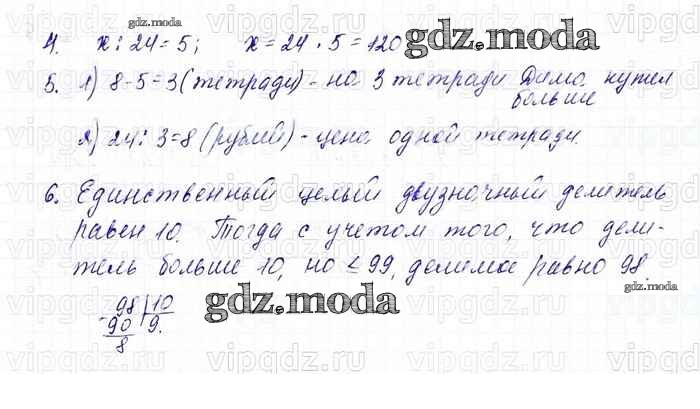 gdz.moda
4. x : 24 = 5; x = 24 · 5 = 120
gdz.moda
5. 1) 8-5=3 (тетради) - на 3 тетради Дима купил
больше
2) 24 : 3=8 (рублей) - цена одной тетради.
6. Единственный целый двузначный делитель
равен 10. Тогда с учетом того, что дели-
тель больше 10, но ≤ 99, делимое равно 98.
gdz.moda
- 98 | 10
90 9.
8
gdz.moda
vipgdz.ru vipgdz.ru vipgdz.ru vipgdz.ru